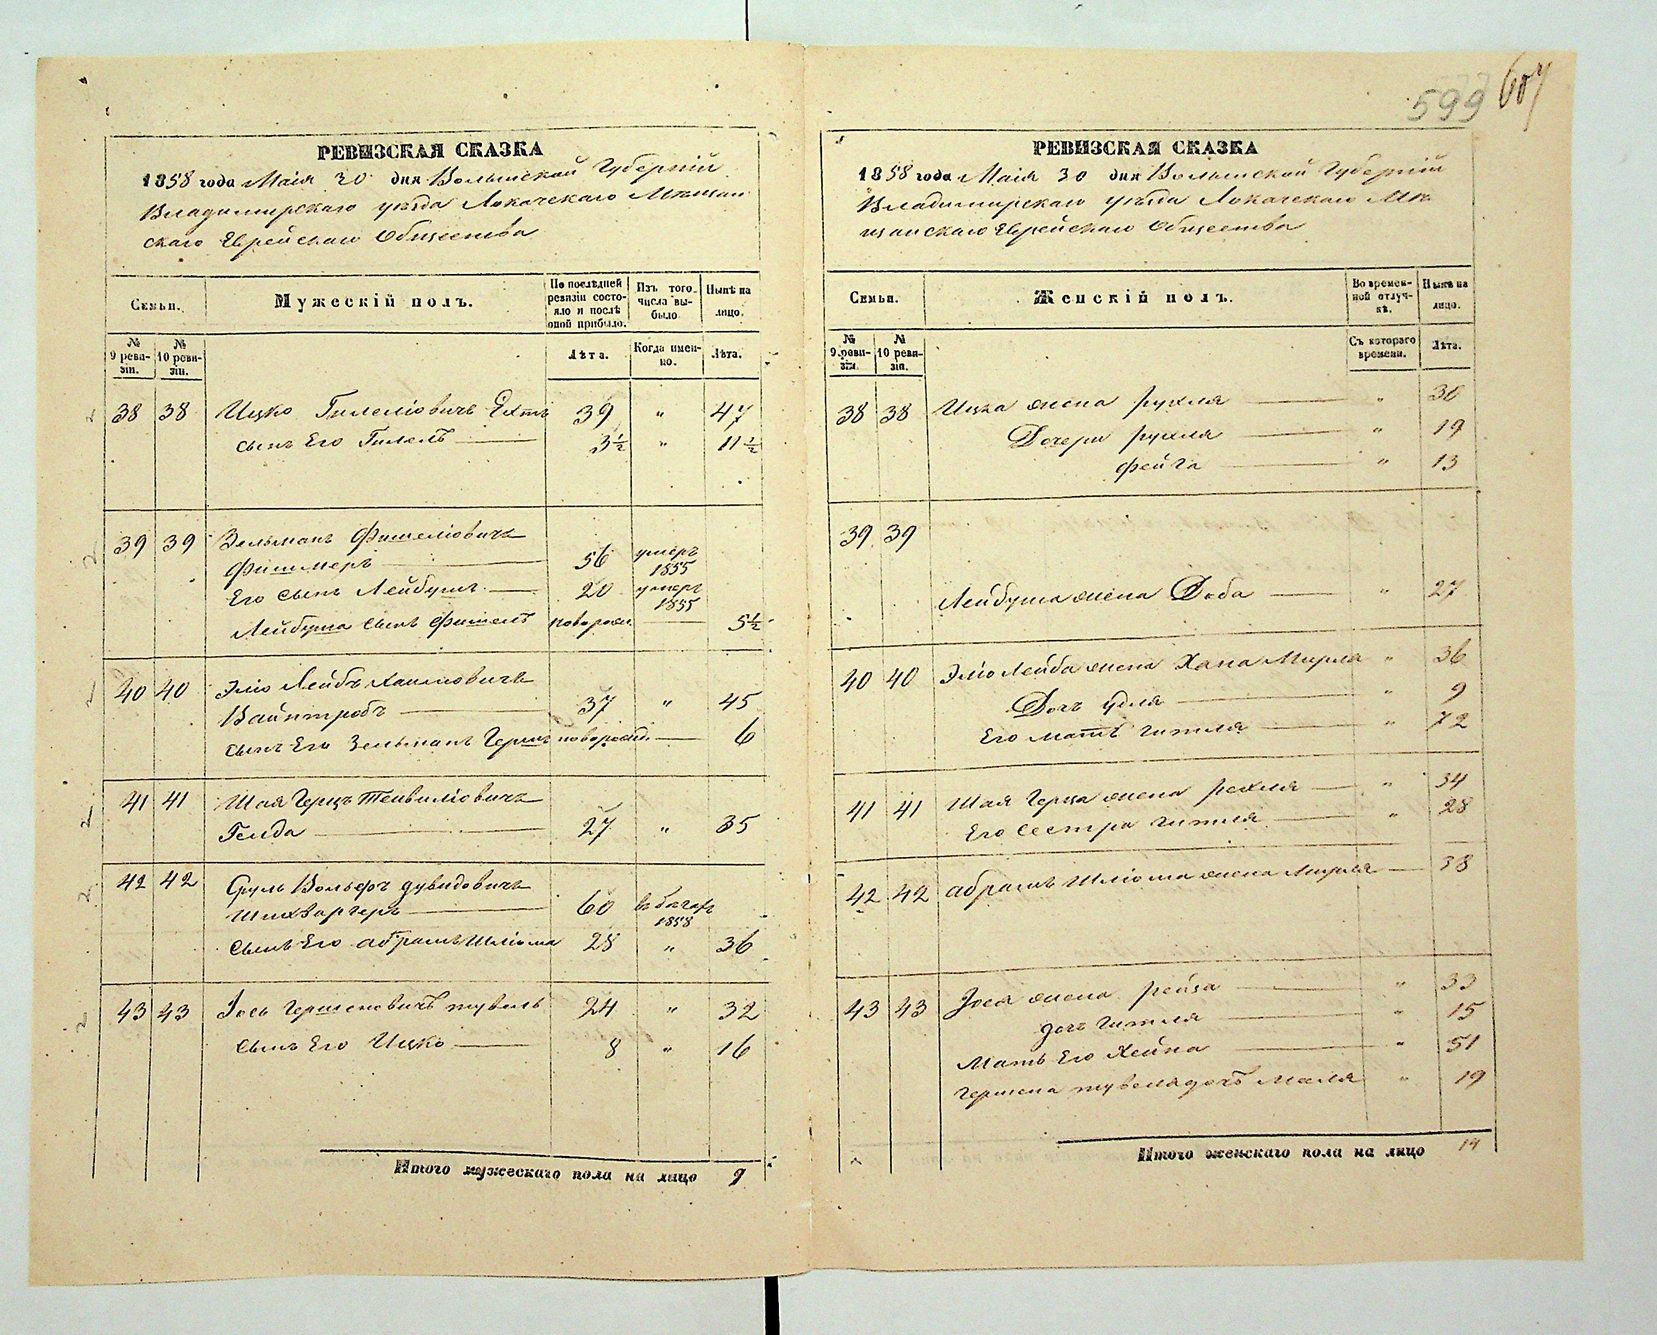 599 607
РЕВИЗСКАЯ СКАЗКА
1858 года Маія 30 дня Волынской Губерніи
Владимирскаго уѣзда Локачскаго Мѣщан
скаго Еврейскаго Общества
Семьи.
Мужескій полъ.
По послѣдней ревизіи состояло и послѣ оной прибыло.
Изъ того числа выбыло.
Нынѣ на лицо.
№ 9 ревизіи.
№ 10 ревизіи.
Лѣта.
Когда именно.
Лѣта.
38 38 Ицко Гилеліовичъ 39 " 47
сынъ Его Гилель 3½ " 11½
39 39 Зельманъ Фишеліовичъ
Фишмеръ 56 умеръ 1855
Его сынъ Лейбушъ 20 умеръ 1855
Лейбуша сынъ Фишель новорожд. 5½
40 40 Эліо Лейбъ Хаимовичъ
Вайнтробъ 37 " 45
сынъ Его Зельманъ Герцъ новорожд. 6
41 41 Шая Герцъ Тевиліовичъ
Гелда 27 " 35
42 42 Сруль Вольфъ Дувидовичъ
60 1858
сынъ Его Абрамъ Шліома 28 " 36
43 43 Іось Гершеновичъ Тувель 24 " 32
сынъ Его Ицко 8 " 16
Итого мужескаго пола на лицо 9
РЕВИЗСКАЯ СКАЗКА
1858 года Маія 30 дня Волынской Губерніи
Владимирскаго уѣзда Локачскаго Мѣ
щанскаго Еврейскаго Общества
Семьи.
Женскій полъ.
Во временной отлучкѣ.
Нынѣ на лицо.
№ 9 ревизіи.
№ 10 ревизіи.
Съ котораго времени.
Лѣта.
38 38 Ицка жена Рухля " 30
Дочери Рухля " 19
Фейга " 13
39 39
Лейбуша жена Доба " 27
40 40 Эліо Лейба жена Хана Мирля " 36
Дочь Удля " 9
Его мать Гитля " 72
41 41 Шая Герца жена Рехля " 34
Его Сестра Гитля " 28
42 42 Абрамъ Шліома жена Мирля 38
43 43 Іося жена Рейза " 33
дочь Гитля " 15
Мать Его Хейна " 51
Гершена Тувеля дочь Маля " 19
Итого женскаго пола на лицо 14